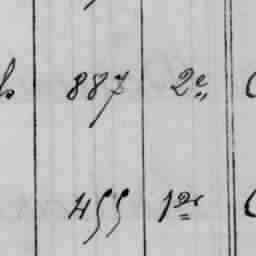 887 2e
455 1er